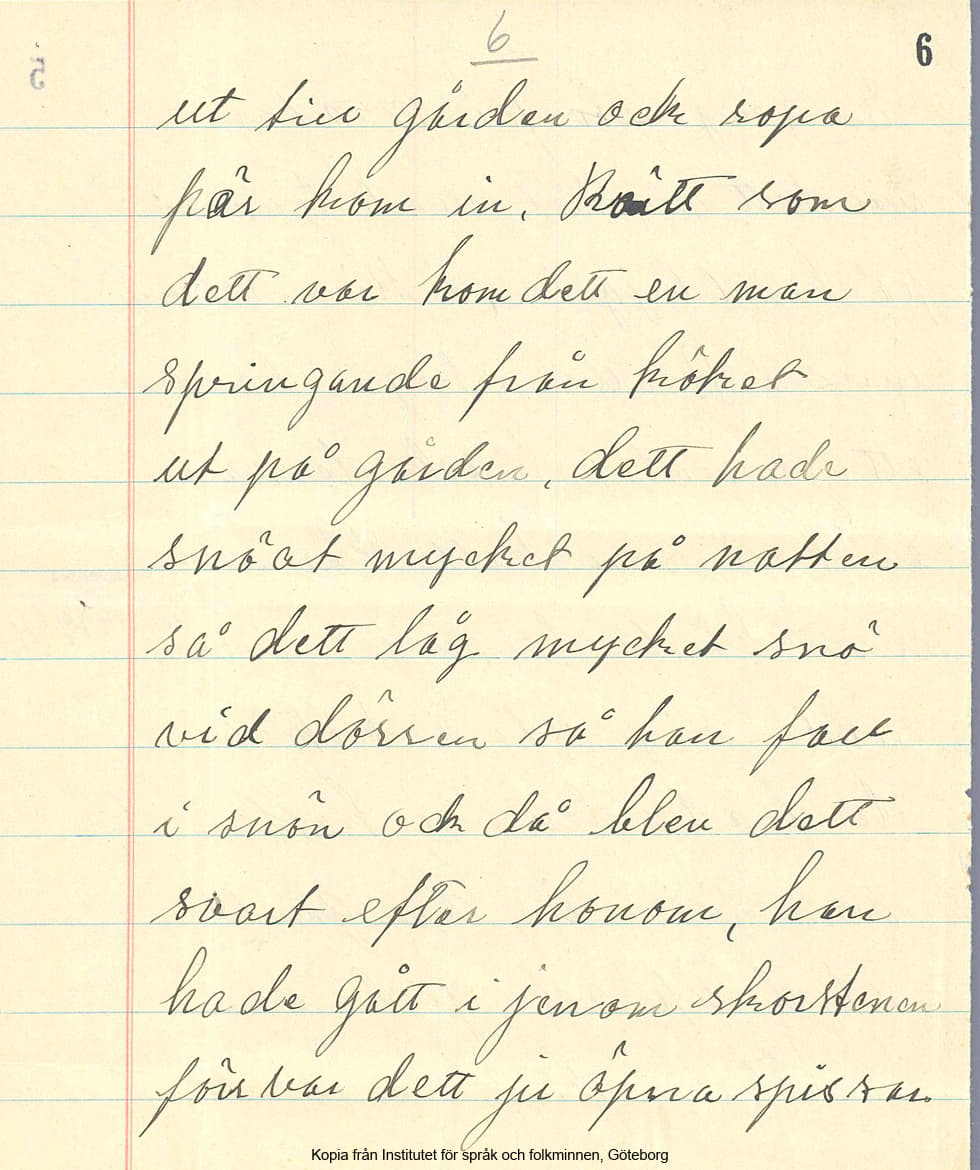 6
6
ut till gården ock ropa
pär kom in. Rätt som
dett var kom dett en man
springande från köket
ut på gården, dett hade
snöat mycket på natten
så dett låg mycket snö
vid dörren så han fall
i snön ock då blev dett
svart efter honom, han
hade gått i jenom skorstenen
förr var dett ju öpna spissar
Kopia från Institutet för språk och folkminnen, Göteborg